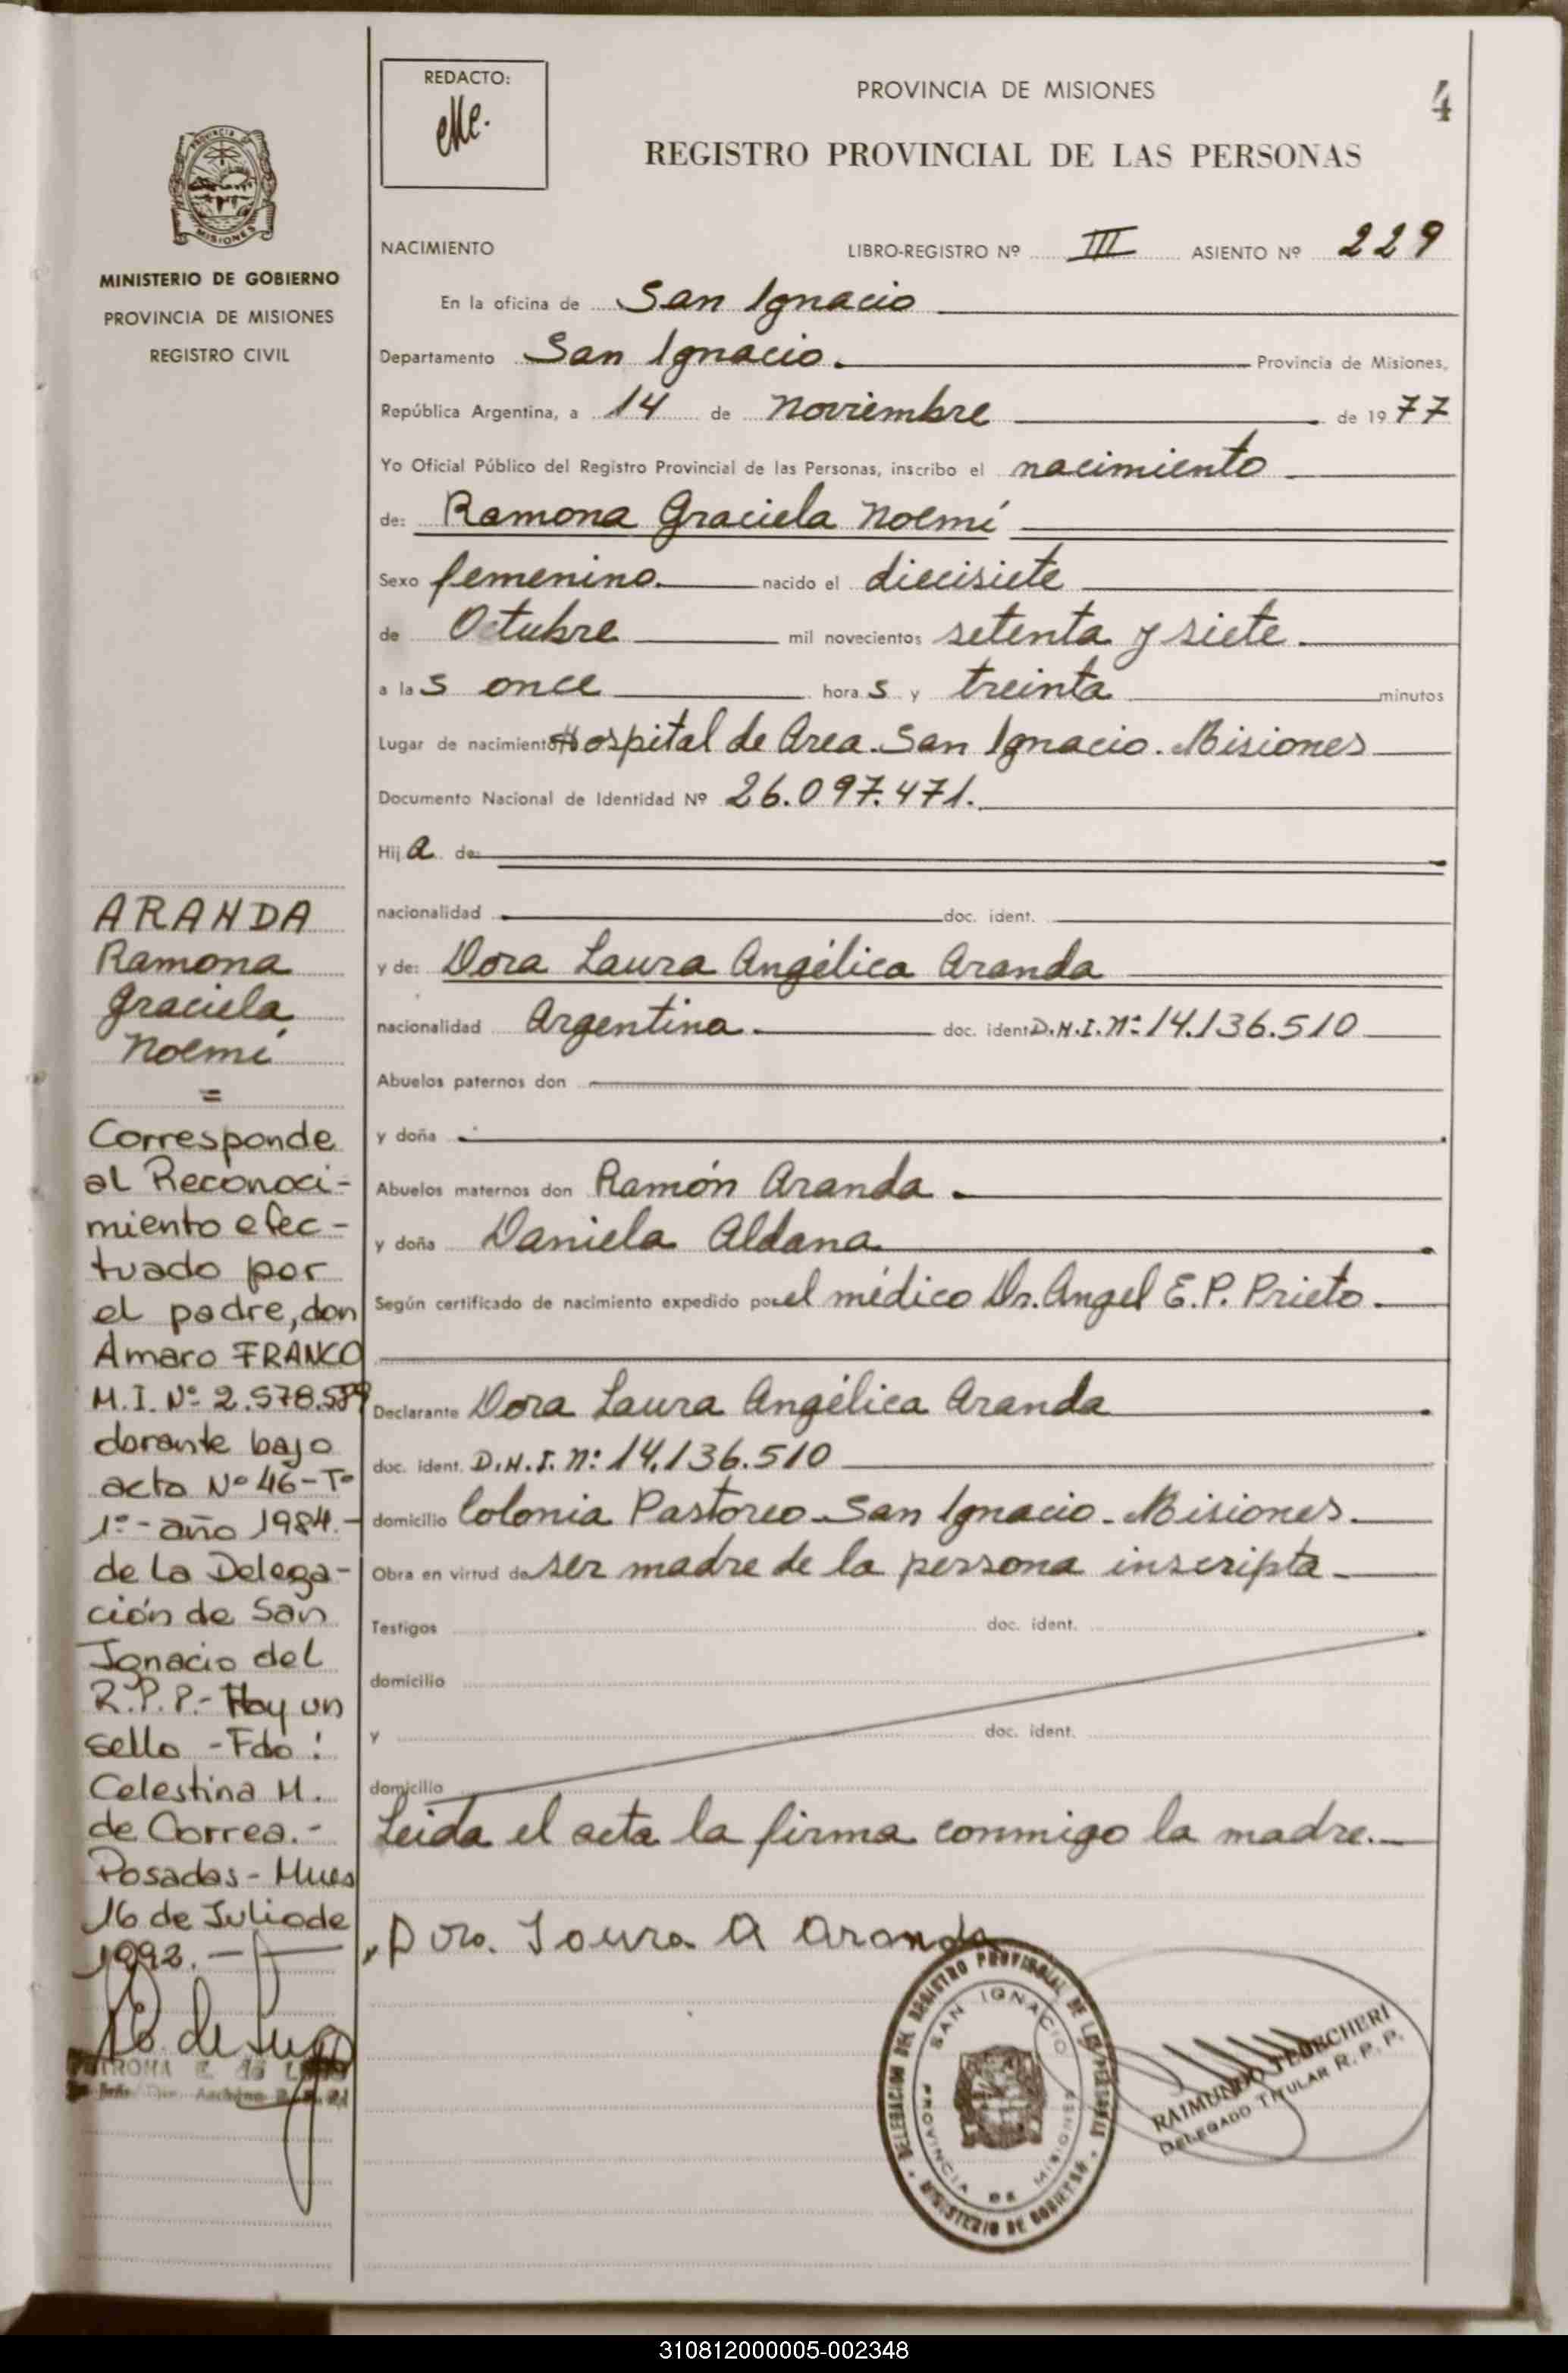 REDACTO:
PROVINCIA DE MISIONES
4
REGISTRO PROVINCIAL DE LAS PERSONAS
PROVINCIA DE
MISIONES
MINISTERIO DE GOBIERNO
PROVINCIA DE MISIONES
REGISTRO CIVIL
NACIMIENTO LIBRO-REGISTRO Nº III ASIENTO Nº 229
En la oficina de San Ignacio
Departamento San Ignacio. Provincia de Misiones,
República Argentina, a 14 de noviembre de 1977
Yo Oficial Público del Registro Provincial de las Personas, inscribo el nacimiento
de: Ramona Graciela Noemí
Sexo femenino. nacido el diecisiete
de Octubre mil novecientos setenta y siete.
a las once horas y treinta minutos
Lugar de nacimiento Hospital de Area. San Ignacio. Misiones
Documento Nacional de Identidad Nº 26.097.471.
Hija de:
nacionalidad doc. ident.
y de: Dora Laura Angélica Aranda
nacionalidad Argentina. doc. ident. D.N.I. Nº 14.136.510
Abuelos paternos don
y doña
Abuelos maternos don Ramón Aranda.
y doña Daniela Aldana
Según certificado de nacimiento expedido por el médico Dr. Angel E.P. Prieto.
Declarante Dora Laura Angélica Aranda
doc. ident. D.N.I. Nº 14.136.510
domicilio Colonia Pastoreo - San Ignacio - Misiones.
Obra en virtud de ser madre de la persona inscripta
Testigos doc. ident.
domicilio
y doc. ident.
domicilio
Leida el acta la firma conmigo la madre.
Dora Laura A Aranda
DELEGACION DEL REGISTRO PROVINCIAL DE LAS PERSONAS
MINISTERIO DE GOBIERNO
SAN IGNACIO
PROVINCIA DE MISIONES
RAIMUNDO TEBECHERI
DELEGADO TITULAR R. P. P.
ARANDA
Ramona
Graciela
Noemí
=
Corresponde
al Reconoci-
miento efec-
tuado por
el padre, don
Amaro FRANCO
M.I. Nº 2.578.589
dorante bajo
acta Nº 46-Tº
1º-año 1984.-
de la Delega-
ción de San
Ignacio del
R.P.P.- Hay un
sello -Fdo:
Celestina M.
de Correa.-
Posadas - Mnes
16 de Julio de
1992.-
310812000005-002348